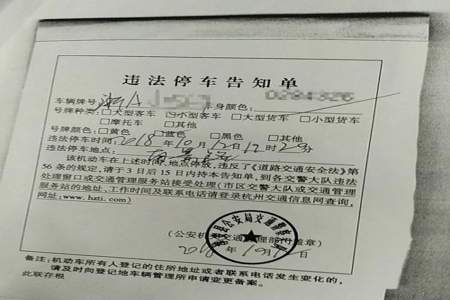 违法停车告知单
车辆牌号 浙A 车身颜色:
号牌种类: □大型客车 小型客车 □大型货车 □小型货车
□摩托车 □其他
号牌颜色: □黄色 蓝色 □黑色 □其他
违法停车时间: 2018年10月12日12时2分
违法停车地点:
该机动车在上述时间、地点停放,违反了《道路交通安全法》第
56条的规定,请于3日后15日内持本告知单,到各交警大队违法
处理窗口或交通管理服务站接受处理(市区交警大队或交通管理
服务站的地址、工作时间及联系电话请登录杭州交通信息网查询,
网址:www.hzti.com)
(公安机关交通管理部门盖章)
2018年10月
备注:机动车所有人登记的住所地址或者联系电话发生变化的,
请及时向登记地车辆管理所申请变更备案。
此联存根